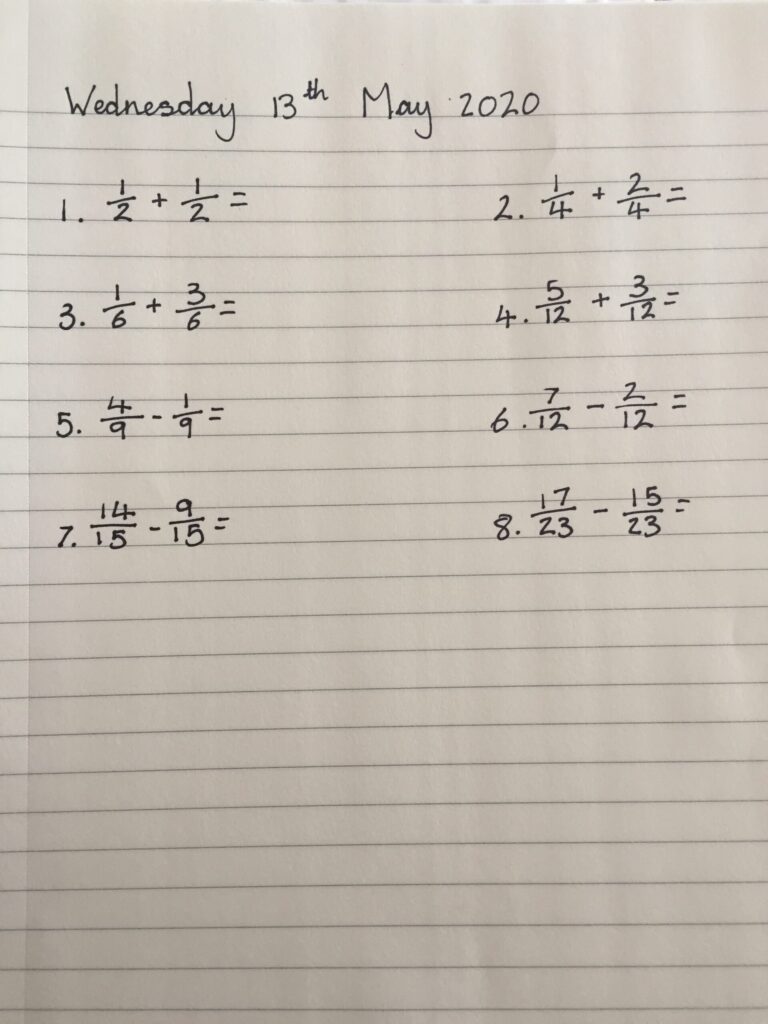 Wednesday 13th May 2020
1. 1/2 + 1/2 =
2. 1/4 + 2/4 =
3. 1/6 + 3/6 =
4. 5/12 + 3/12 =
5. 4/9 - 1/9 =
6. 7/12 - 2/12 =
7. 14/15 - 9/15 =
8. 17/23 - 15/23 =